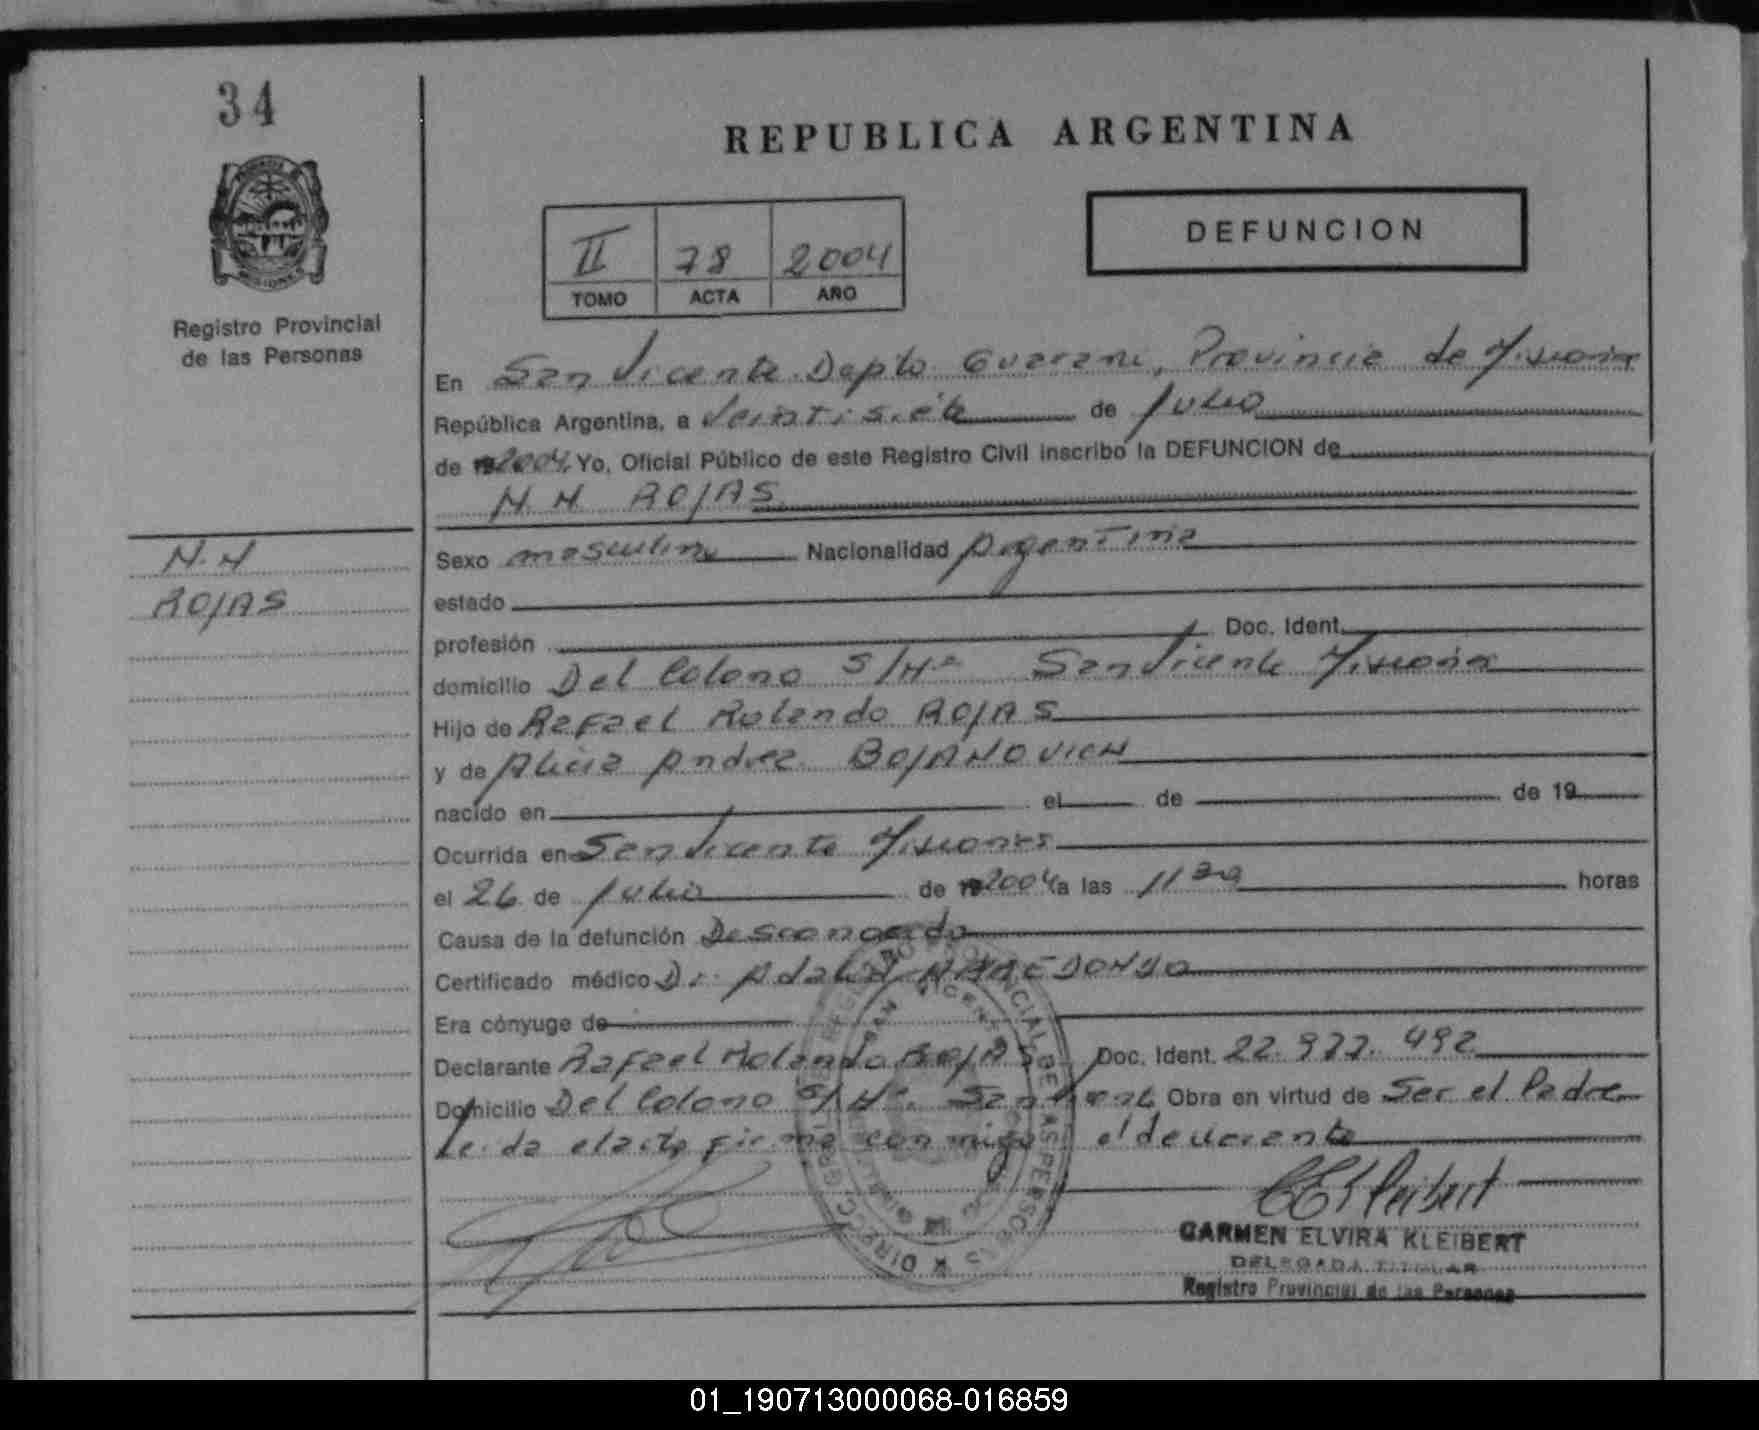 34
REPUBLICA ARGENTINA
DEFUNCION
II 78 2004
TOMO ACTA AÑO
Registro Provincial
de las Personas
En San Vicente Depto Guarani, Provincia de Misiones
República Argentina, a Veintisiete de Julio
de 2004 Yo, Oficial Público de este Registro Civil inscribo la DEFUNCION de
N.N. ROJAS
N.N
ROJAS
Sexo masculino Nacionalidad Argentina
estado
profesión Doc. Ident.
domicilio Del Colono S/Nº San Vicente Misiones
Hijo de Rafael Rolando ROJAS
y de Alicia Andrea BOJANOVICH
nacido en el de de 19
Ocurrida en San Vicente Misiones
el 26 de Julio de 2004 a las 11 30 horas
Causa de la defunción Desconocido
Certificado médico Dr.
Era cónyuge de
Declarante Rafael Rolando ROJAS Doc. Ident. 22.977.492
Domicilio Del Colono S/Nº. San Vicente Obra en virtud de Ser el Padre
Leida el acta firma con migo el declarante
CEKleibert
CARMEN ELVIRA KLEIBERT
DELEGADA TITULAR
Registro Provincial de las Personas
01_190713000068-016859